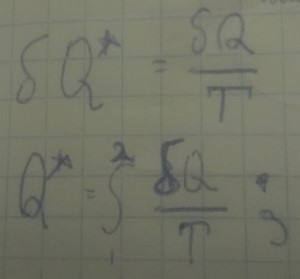 δQ* = δQ/T
Q* = ∫₁² δQ/T ;